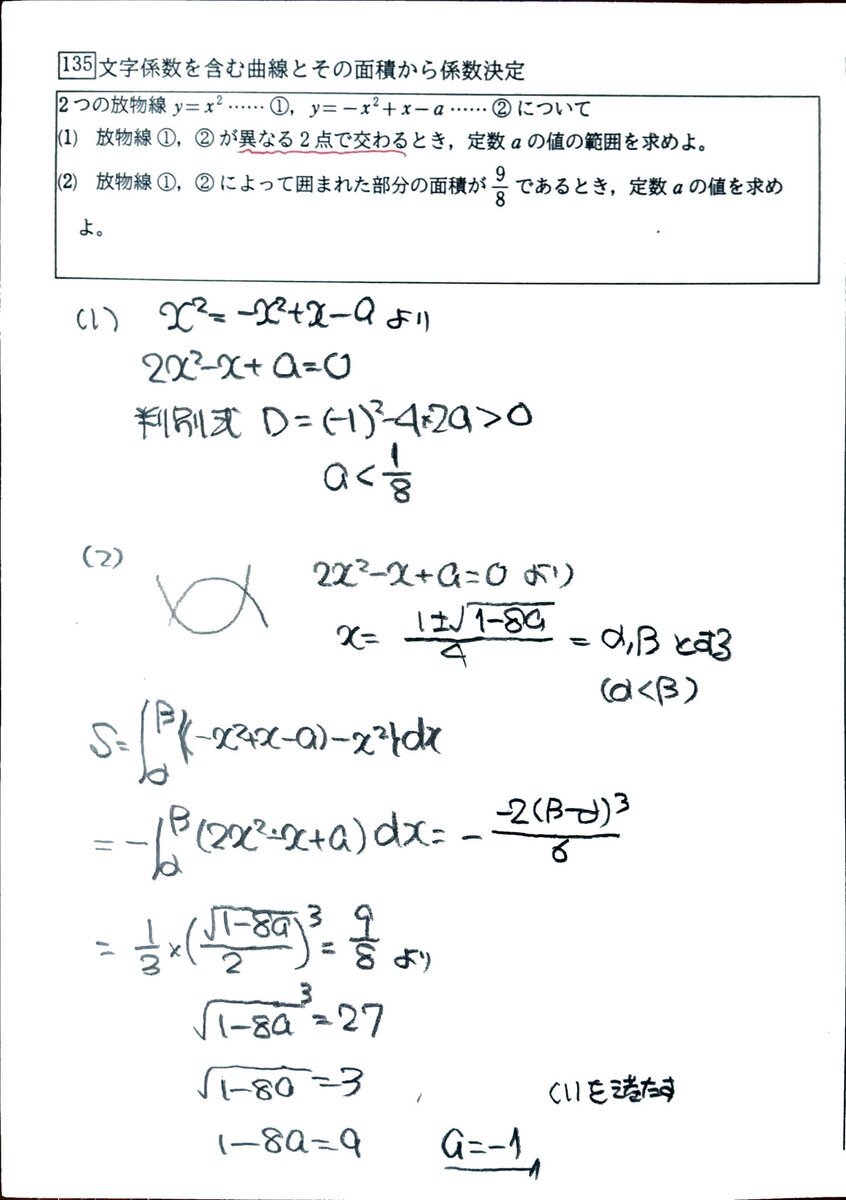 135 文字係数を含む曲線とその面積から係数決定
2つの放物線 y=x² …… ①, y=−x²+x−a …… ② について
(1) 放物線 ①, ② が異なる2点で交わるとき,定数 a の値の範囲を求めよ。
(2) 放物線 ①, ② によって囲まれた部分の面積が 9/8 であるとき,定数 a の値を求め
よ。
(1) x²=−x²+x−a より
2x²−x+a=0
判別式 D=(−1)²−4×2a>0
a<1/8
(2) 2x²−x+a=0 より
x= (1±√(1−8a))/4 = α,β とする
(α<β)
S=∫_α^β{(−x²+x−a)−x²}dx
=−∫_α^β(2x²−x+a)dx=− −2(β−α)³/6
= 1/3×(√(1−8a)/2)³= 9/8 より
√(1−8a)³=27
√(1−8a)=3
(1)を満たす
1−8a=9 a=−1